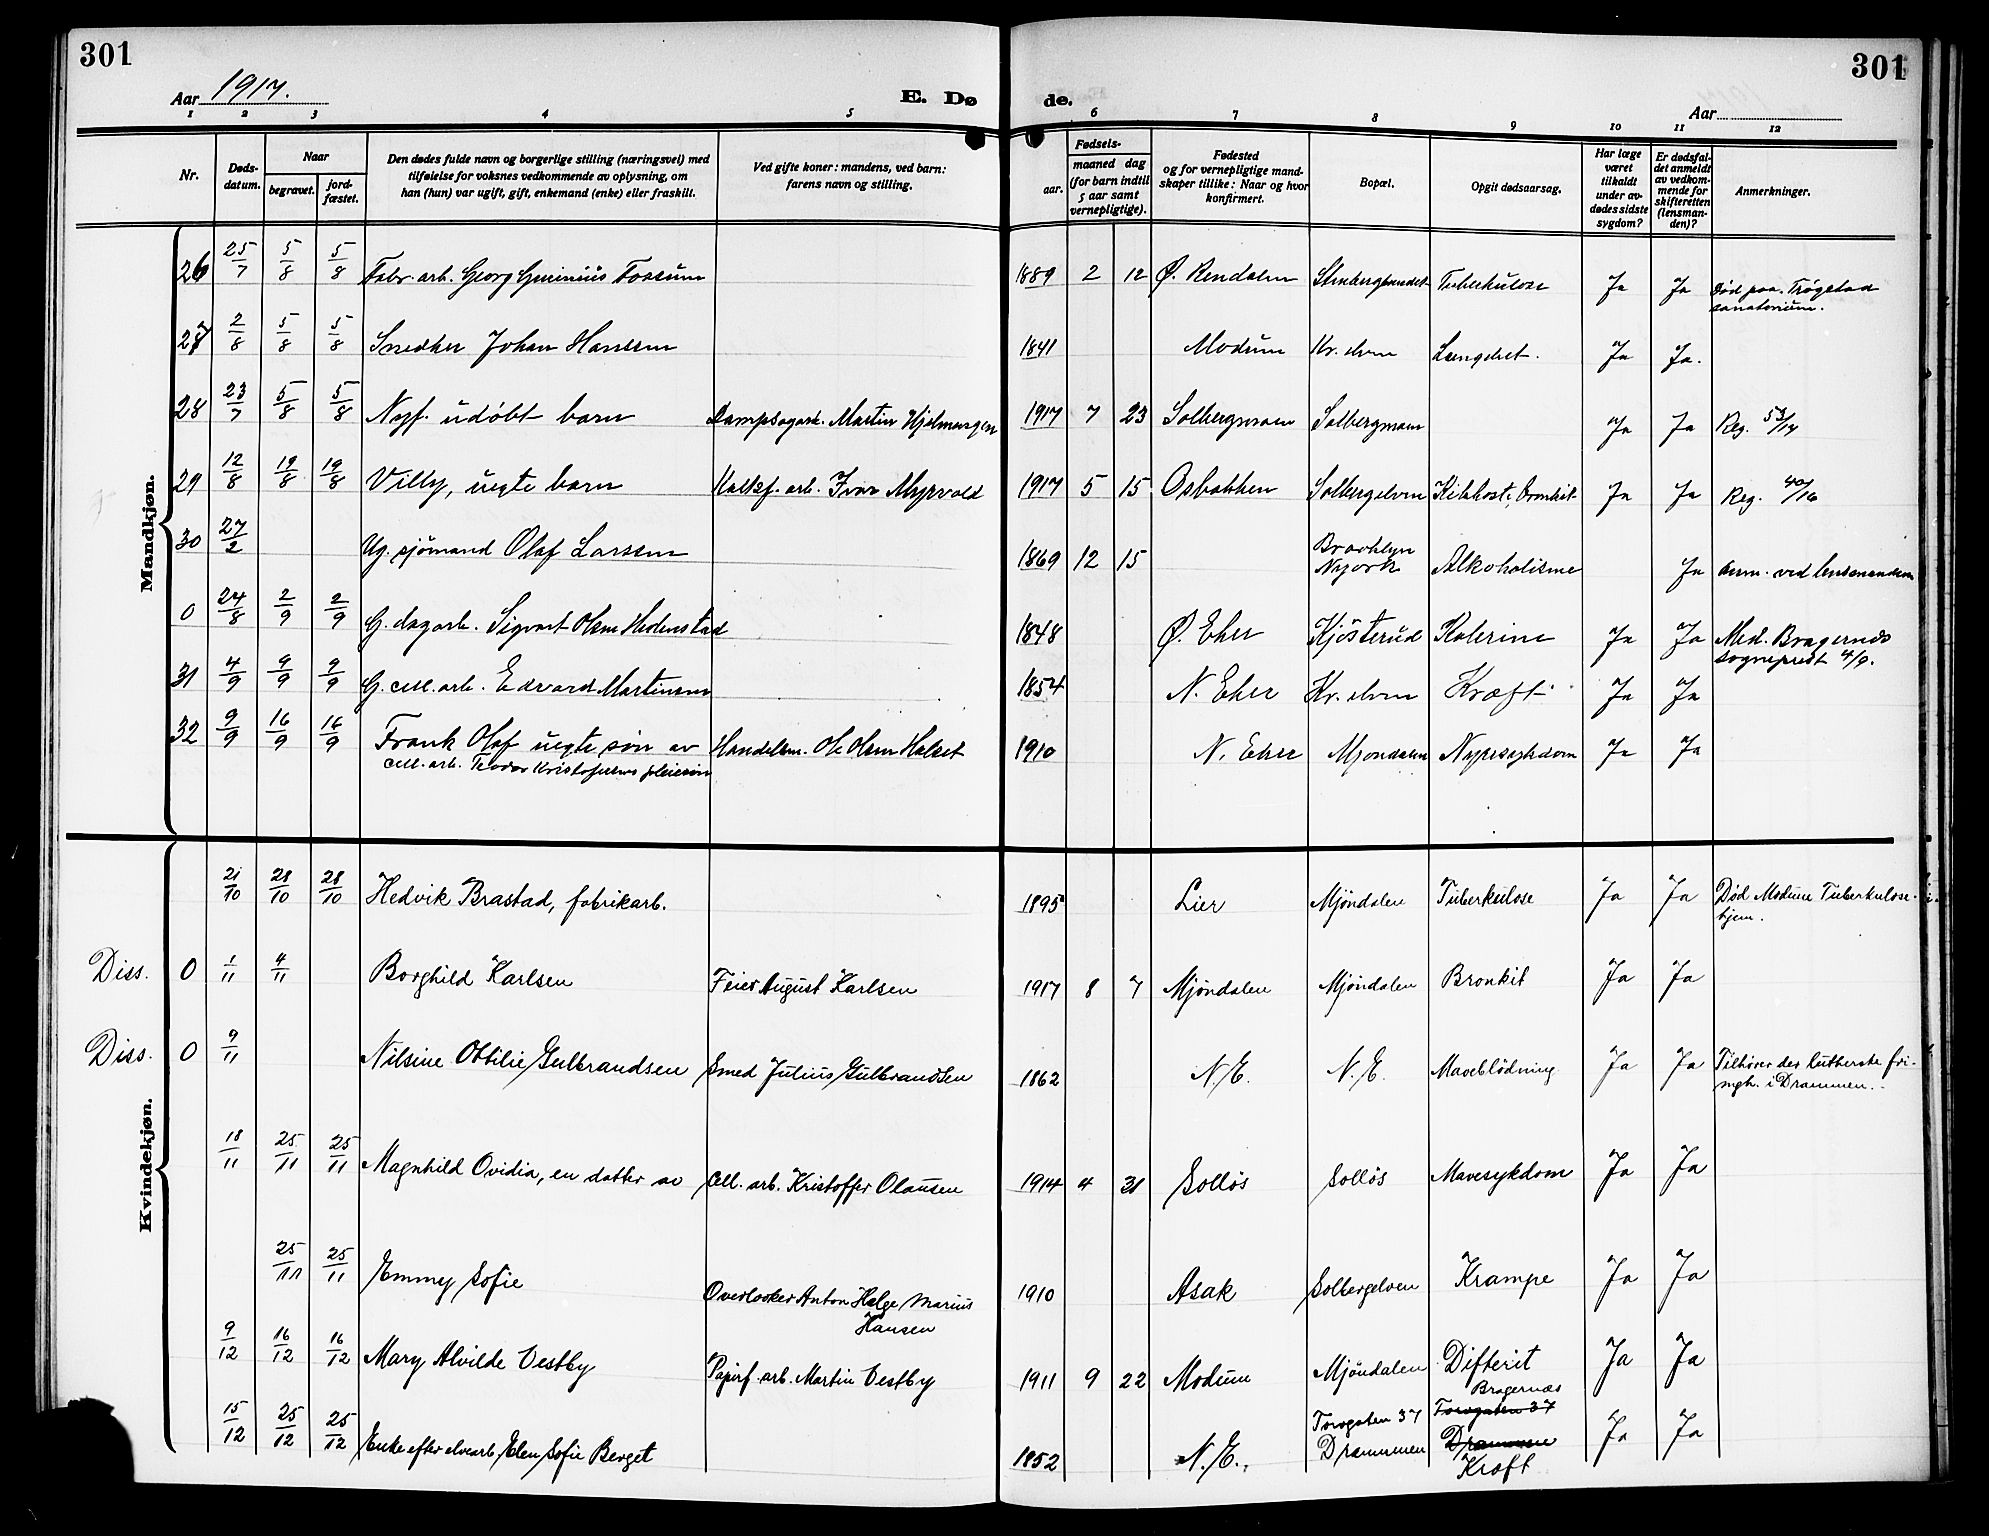 301
301
Aar 1917.
E. Dø
de.
Aar
1 2 3 4 5 6 7 8 9 10 11 12
Nr.
Døds-
datum.
Naar
begravet.
jord-
fæstet.
Den dødes fulde navn og borgerlige stilling (næringsvei) med
tilføielse for voksnes vedkommende av oplysning, om
han (hun) var ugift, gift, enkemand (enke) eller fraskilt.
Ved gifte koner: mandens, ved barn:
farens navn og stilling.
Fødsels-
aar.
maaned dag
(for barn indtil
5 aar samt
vernepligtige).
Fødested
og for vernepligtige mand-
skaper tillike: Naar og hvor
konfirmert.
Bopæl.
Opgit dødsaarsag.
Har læge
været
tilkaldt
under av-
dødes sidste
sygdom?
Er dødsfal-
det anmeldt
av vedkom-
mende for
skifteretten
(lensman-
den)?
Anmerkninger.
Mandkjøn.
26 25/7 5/8 5/8 Fabr. arb. Georg Fossum 1889 2 12 Ø. Rendalen Tuberkulose Ja Ja Død paa Trøgstad
sanatorium.
27 2/8 5/8 5/8 Snedker Johan Hansen 1841 Modum Kr. elven Ja Ja.
28 23/7 5/8 5/8 Nyf. udöbt barn Dampsagarb. Martin 1917 7 23 Solbergmoen Solbergmoen Ja Ja Reg. 53/17
29 12/8 19/8 19/8 Villy, uegte barn Kalkf. arb. Ivar Myrvold 1917 5 15 Osbakken Solbergelven Kikhoste, Bronkit Ja Ja Reg. 40/16
30 27/2 Ug. sjömand Olaf Larsen 1869 12 15 Brooklyn
Nyork Alkoholisme Ja anm. ved lensmanden
0 24/8 2/9 2/9 G. dagarb. Sigvart Olsen Hedenstad 1848 Ø. Eker Kjösterud Ja Ja Med. Bragernes
sogneprest 4/9.
31 4/9 9/9 9/9 G. cell. arb. Edvard Martinsen 1854 N. Eker Kr. elven Kræft Ja Ja
32 9/9 16/9 16/9 Frank Olaf uegte søn av Handelsm. Ole Olsen 1910 N. Eker Mjøndalen Nyresykdom Ja Ja
cell. arb. Kristofersens pleiesøn
Kvindekjøn.
21/10 28/10 28/10 Hedvik Brastad, fabrikarb. 1895 Lier Mjöndalen Tuberkulose Ja Ja Död Modum Tuberkulose-
hjem.
Diss. 0 1/11 4/11 Borghild Karlsen Feier August Karlsen 1917 8 7 Mjöndalen Mjöndalen Bronkit Ja Ja
Diss. 0 9/11 Nilsine Ottilie Gulbrandsen Smed Julius Gulbrandsen 1862 N.E. N.E. Maveblödning Ja Ja Tilhører den lutherske fri-
mgh. i Drammen.
18/11 25/11 25/11 Magnhild Ovidia, en datter av Cell. arb. Kristoffer Olausen 1914 4 31 Solløs Solløs Mavesykdom Ja Ja
25/11 25/11 Emmy Sofie Overlooker Anton Helge Marius
Hansen 1910 Asak Solbergelven Krampe Ja Ja
9/12 16/12 16/12 Mary Alvilde Vestby Papirf. arb. Martin Vestby 1911 9 22 Modum Mjöndalen Difterit Ja Ja
15/12 25/12 25/12 Enke efter elvearb. Elen Sofie Berget 1852 N.E. Bragernæs
Torvgaten 37
Drammen Torvgaten 37
Drammen
Kræft Ja Ja